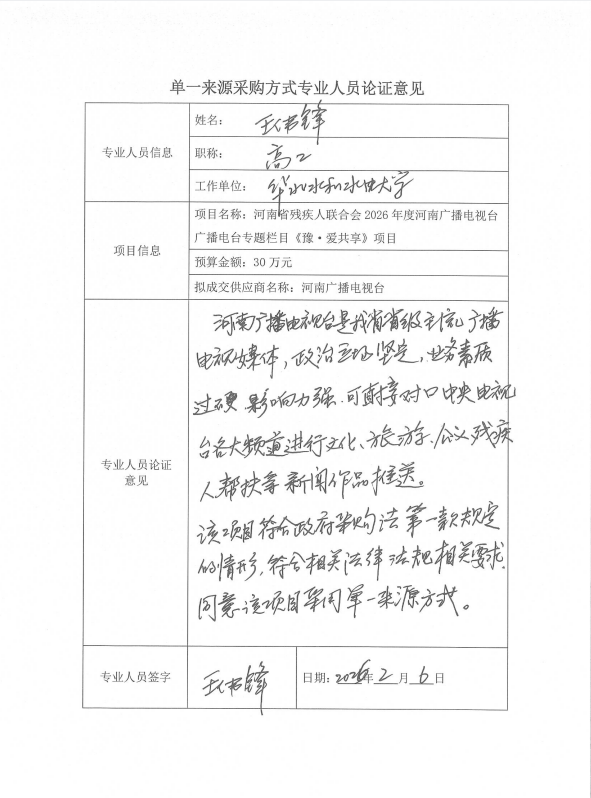 单一来源采购方式专业人员论证意见
专业人员信息
姓名：
职称：高工
工作单位：华北水利水电大学
项目信息
项目名称：河南省残疾人联合会2026年度河南广播电视台
广播电台专题栏目《豫·爱共享》项目
预算金额：30万元
拟成交供应商名称：河南广播电视台
专业人员论证
意见
河南广播电视台是我省省级主流广播
电视媒体，政治立场坚定，业务素质
过硬 影响力强.可直接对口中央电视
台各大频道进行文化、旅游、公义残疾
人帮扶等新闻作品推送。
该项目符合政府采购法第一款规定
的情形，符合相关法律法规相关要求.
同意该项目采用单一来源方式。
专业人员签字
日期：2026年2月6日